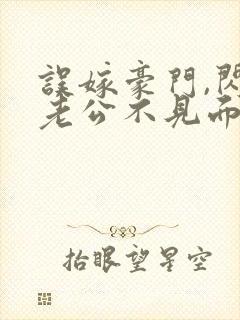 誤嫁豪門,閃
老公不見而
抬眼望星空